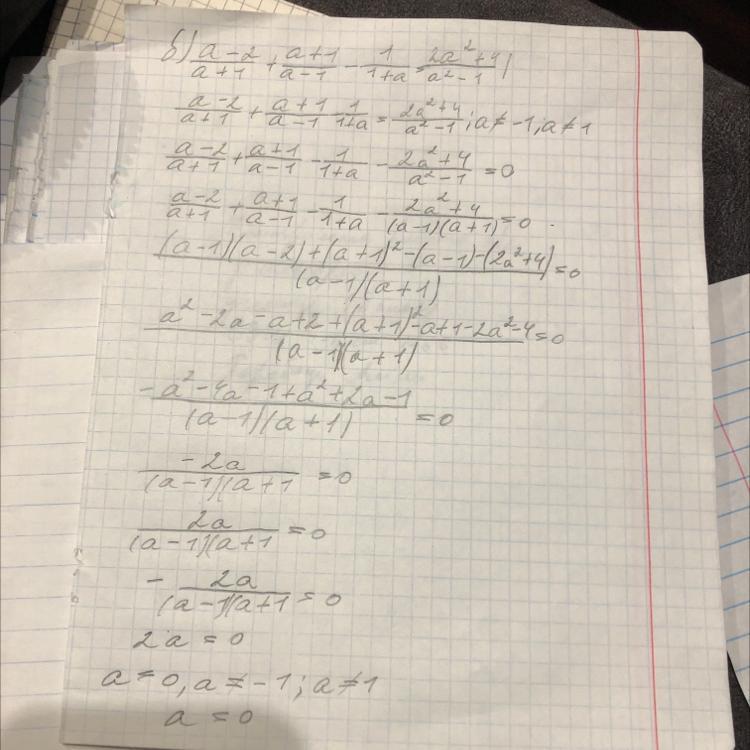 б) (a-2)/(a+1) + (a+1)/(a-1) - 1/(1+a) = (2a²+4)/(a²-1)
(a-2)/(a+1) + (a+1)/(a-1) - 1/(1+a) = (2a²+4)/(a²-1); a≠-1; a≠1
(a-2)/(a+1) + (a+1)/(a-1) - 1/(1+a) - (2a²+4)/(a²-1) = 0
(a-2)/(a+1) + (a+1)/(a-1) - 1/(1+a) - (2a²+4)/((a-1)(a+1)) = 0
((a-1)(a-2)+(a+1)²-(a-1)-(2a²+4))/((a-1)(a+1)) = 0
(a²-2a-a+2+(a+1)²-a+1-2a²-4)/((a-1)(a+1)) = 0
(-a²-4a-1+a²+2a-1)/((a-1)(a+1)) = 0
(-2a)/((a-1)(a+1) = 0
(2a)/((a-1)(a+1) = 0
- (2a)/((a-1)(a+1) = 0
2a = 0
a = 0, a≠-1; a≠1
a = 0